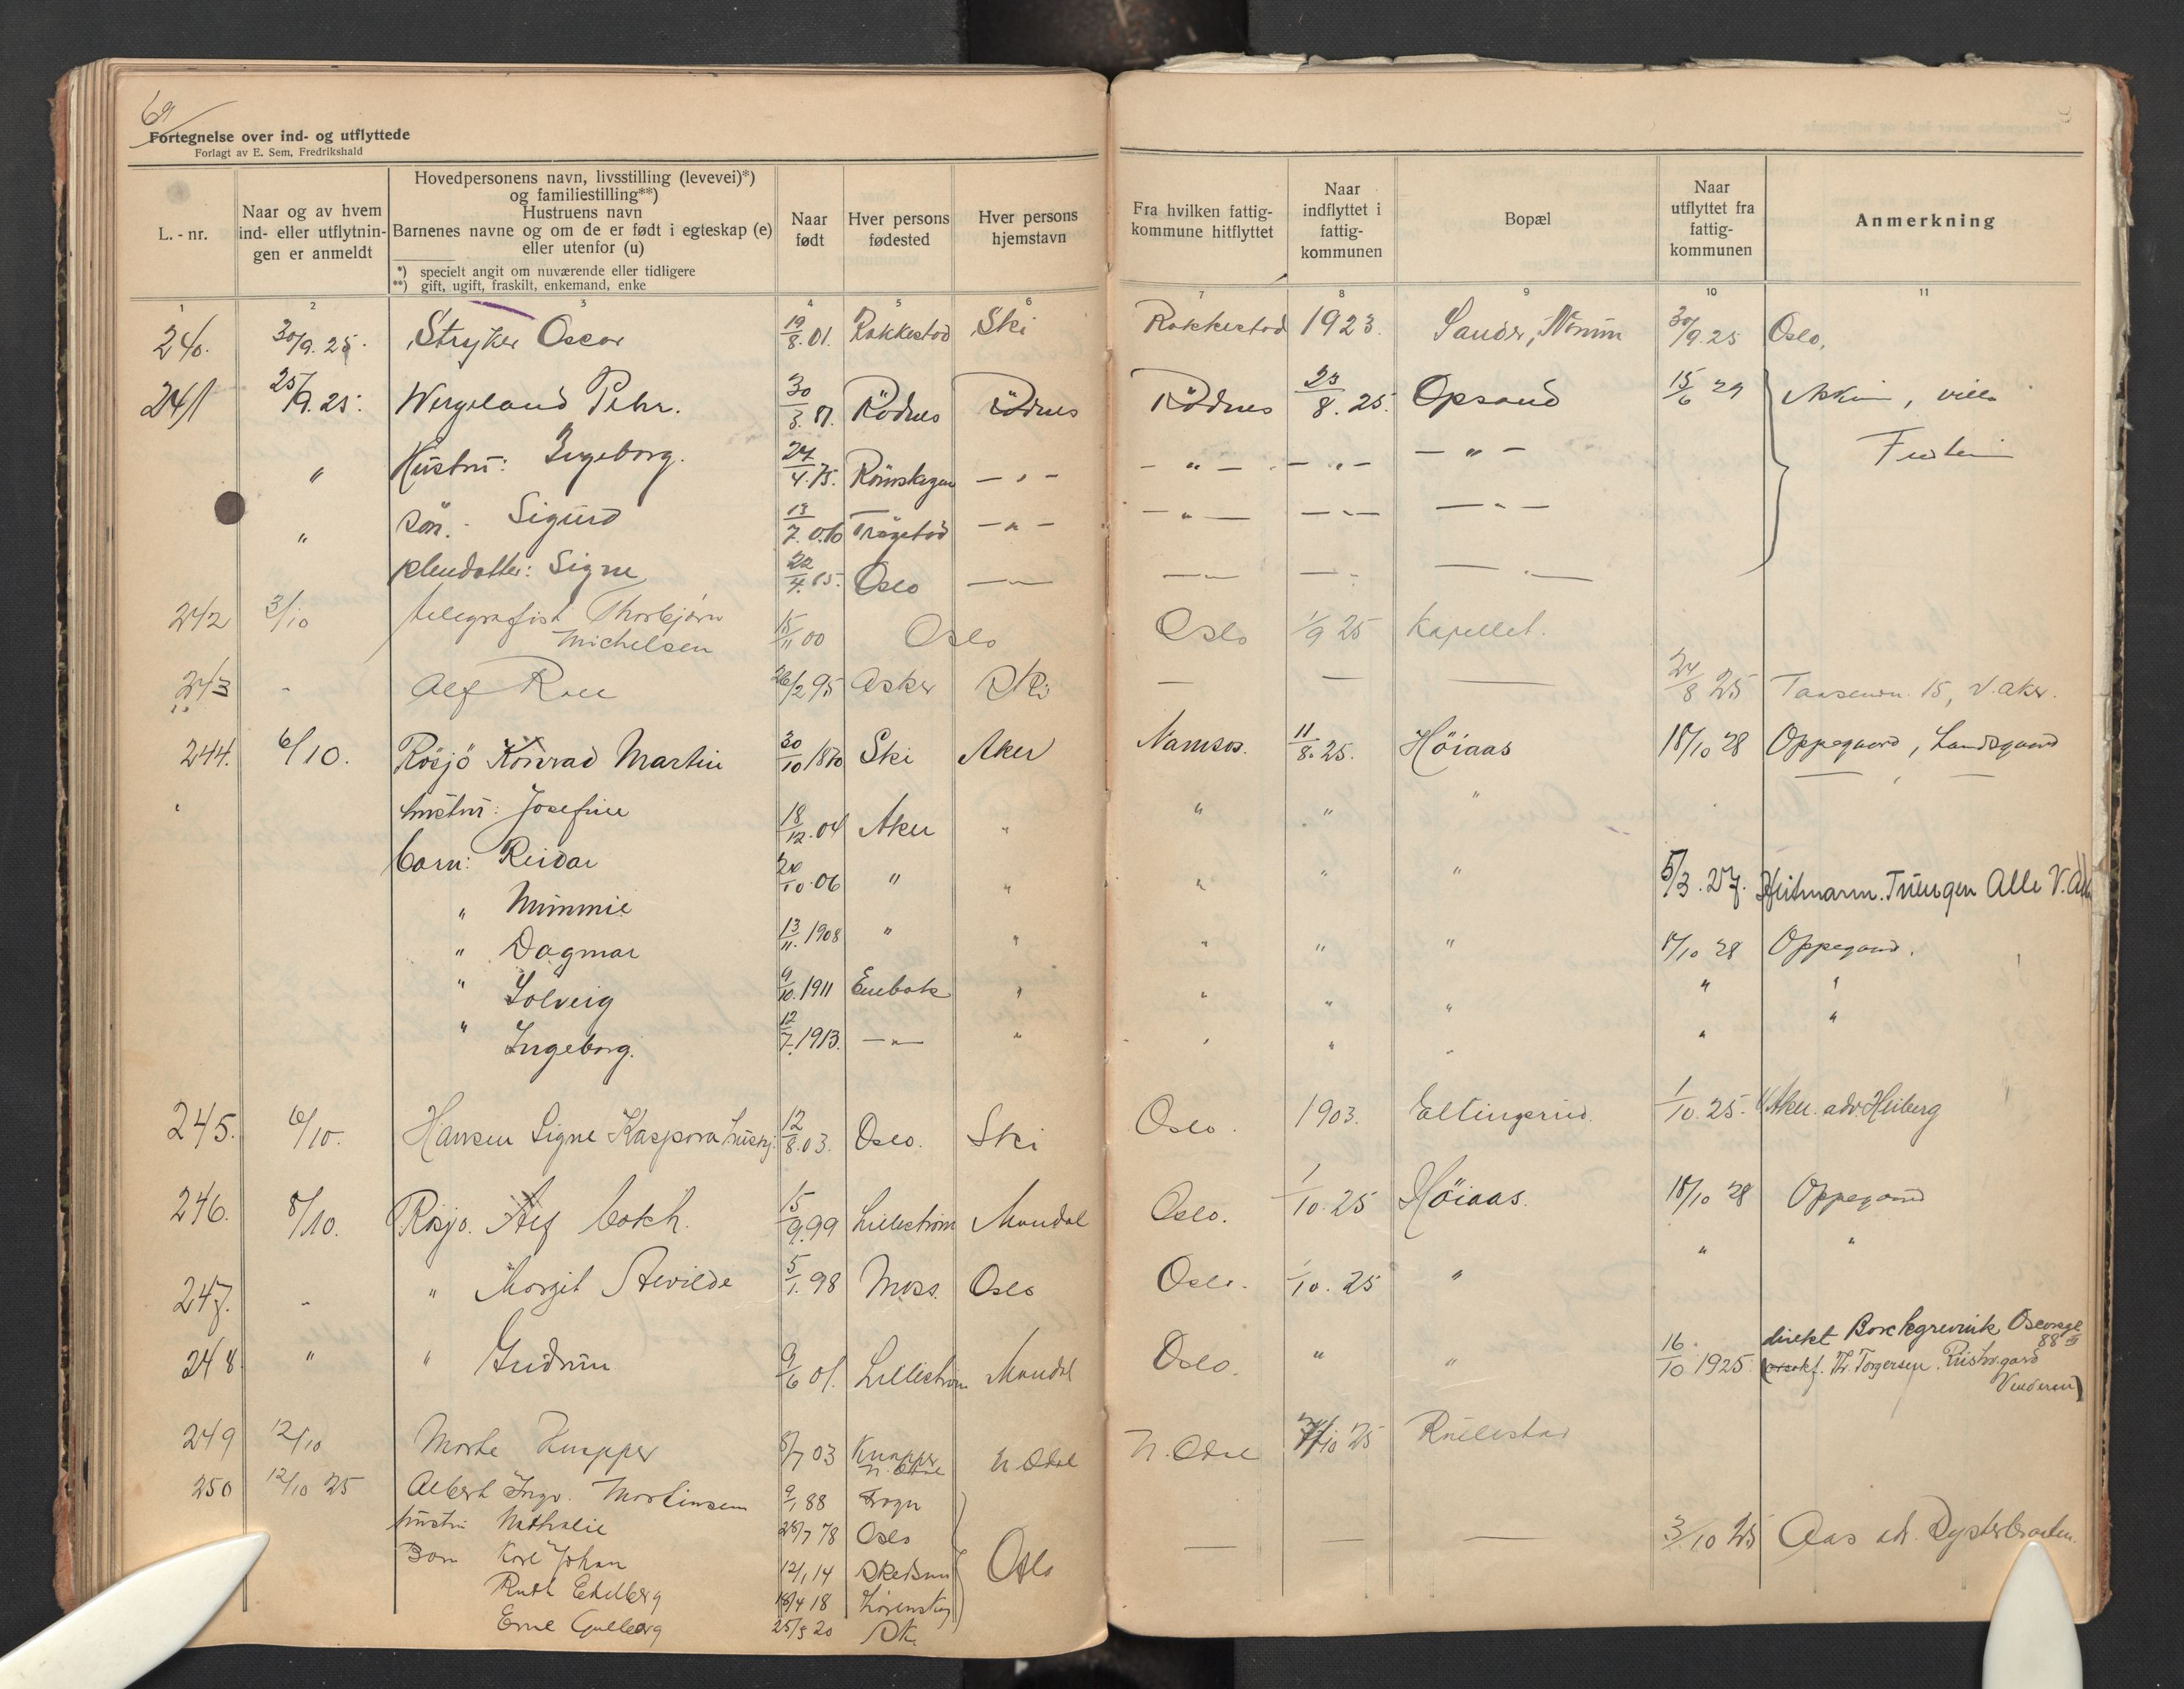 69
Fortegnelse over ind- og utflyttede
Forlagt av E. Sem, Fredrikshald
L. - nr.
Naar og av hvem
ind- eller utflytnin-
gen er anmeldt
Hovedpersonens navn, livsstilling (levevei)*)
og familiestilling**)
Hustruens navn
Barnenes navne og om de er født i egteskap (e)
eller utenfor (u)
*) specielt angit om nuværende eller tidligere
**) gift, ugift, fraskilt, enkemand, enke
Naar
født
Hver persons
fødested
Hver persons
hjemstavn
Fra hvilken fattig-
kommune hitflyttet
Naar
indflyttet i
fattig-
kommunen
Bopæl
Naar
utflyttet fra
fattig-
kommunen
Anmerkning
1 2 3 4 5 6 7 8 9 10 11
240. 30/9. 25. Stryker Oscar 19/8. 01. Rakkestad Ski Rakkestad 1923. Sander, 30/9. 25 Oslo.
241 25/9. 25. Wergeland Pehr. 30/3. Rödnes Rödnes Rödnes 23/8. 25. Opsand 15/6 29 Askim, villa
" Hustru: Ingeborg. 27/4. 75. Römskogen - " - - " - - " - - " -
" Sön: Sigurd 13/7. 06 Trögstad - " - - " - - " - - " -
pleiedatter: Signe 22/4. 15. Oslo - " - - " - - " - - " -
242 3/10 telegrafist Thorbjørn
Michelsen 15/11 00 Oslo Oslo 1/9 25 Kapellet.
243 - Alf Roll 26/2 95 Asker Ski — — — 24/8 25 Taasenvn. 15, V. Aker.
244. 6/10. Rösjö Konrad Martin 30/10 1870 Ski Aker Namsos. 11/8. 25. Höiaas 18/10 28 Oppegaard, Landsgaard
" hustru: Josefine 18/12. 04 Aker " " " "
barn: Reidar 20/10. 06 " " " " " 5/3. 27. Heitmann. Tuengen Alle V. Aker
" Mimmie 13/11. 1908 " " " " " 18/10 28 Oppegaard.
" Dagmar
" Solveig 9/10. 1911 Enebak " " " " " "
" Ingeborg. 12/7. 1913. - " - " " " " " "
245. 6/10. Hansen Signe Kaspora 12/8. 03. Oslo. Ski Oslo. 1903. Eltingsrud. 1/10. 25. Aker. adv Heiberg
246. 8/10. Rösjo. Alf 15/9. 99 Lilleström Mandal Oslo. 1/10. 25 Höiaas. 18/10 28 Oppegaard
247. - " Margit Alvilde 5/1. 98 Moss. Oslo Oslo. 1/10. 25 " " "
248 " " Gudrun 9/6 01. Lilleström Mandal Oslo. " " 16/10 1925 direkt Borchgrevink Oscarsgt
88 III
Th. Torgersen. Risbrgard
Vinderen)
249 12/10 Marte Knapper 8/7 03 Knapper
N. Odal N Odal N. Odal /10 25 Rullestad
250 12/10 25 Albert Ingv. Martinsen 9/1 88 Frogn Oslo — — — 3/10 25 Aas adr. Dysterbraaten.
hustru Nathalie 28/7 78 Oslo
Barn Karl Johan 12/1 14 Skedsmo
Ruth Edelberg 18/4 18 Lørenskog
Erne Gulborg 25/5 20 Ski